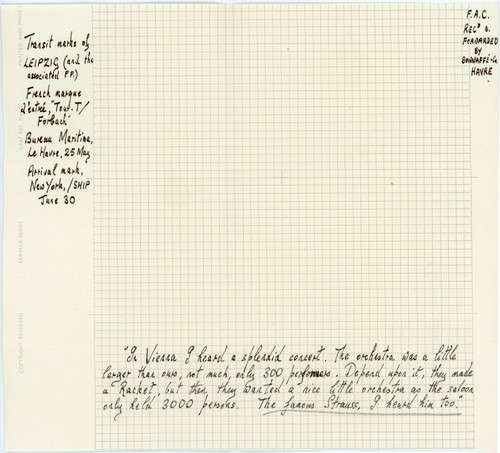 Transit marks of
LEIPZIG (and the
associated P.P.)
French marque
d'entrée, "Tour. T/
Forbach"
Bureau Maritime,
Le Havre, 25 May
Arrival mark,
New York, /SHIP
June 30
F.A.C.
REC'D &
FORWARDED
BY
BONNAFFÉ & Co
HAVRE
"In Vienna I heard a splendid concert. The orchestra was a little
larger than ours, not much, only 300 performers. Depend upon it, they made
a "Racket", but then, they wanted a nice little orchestra as the saloon
only held 3000 persons. The famous Strauss, I heard him too."